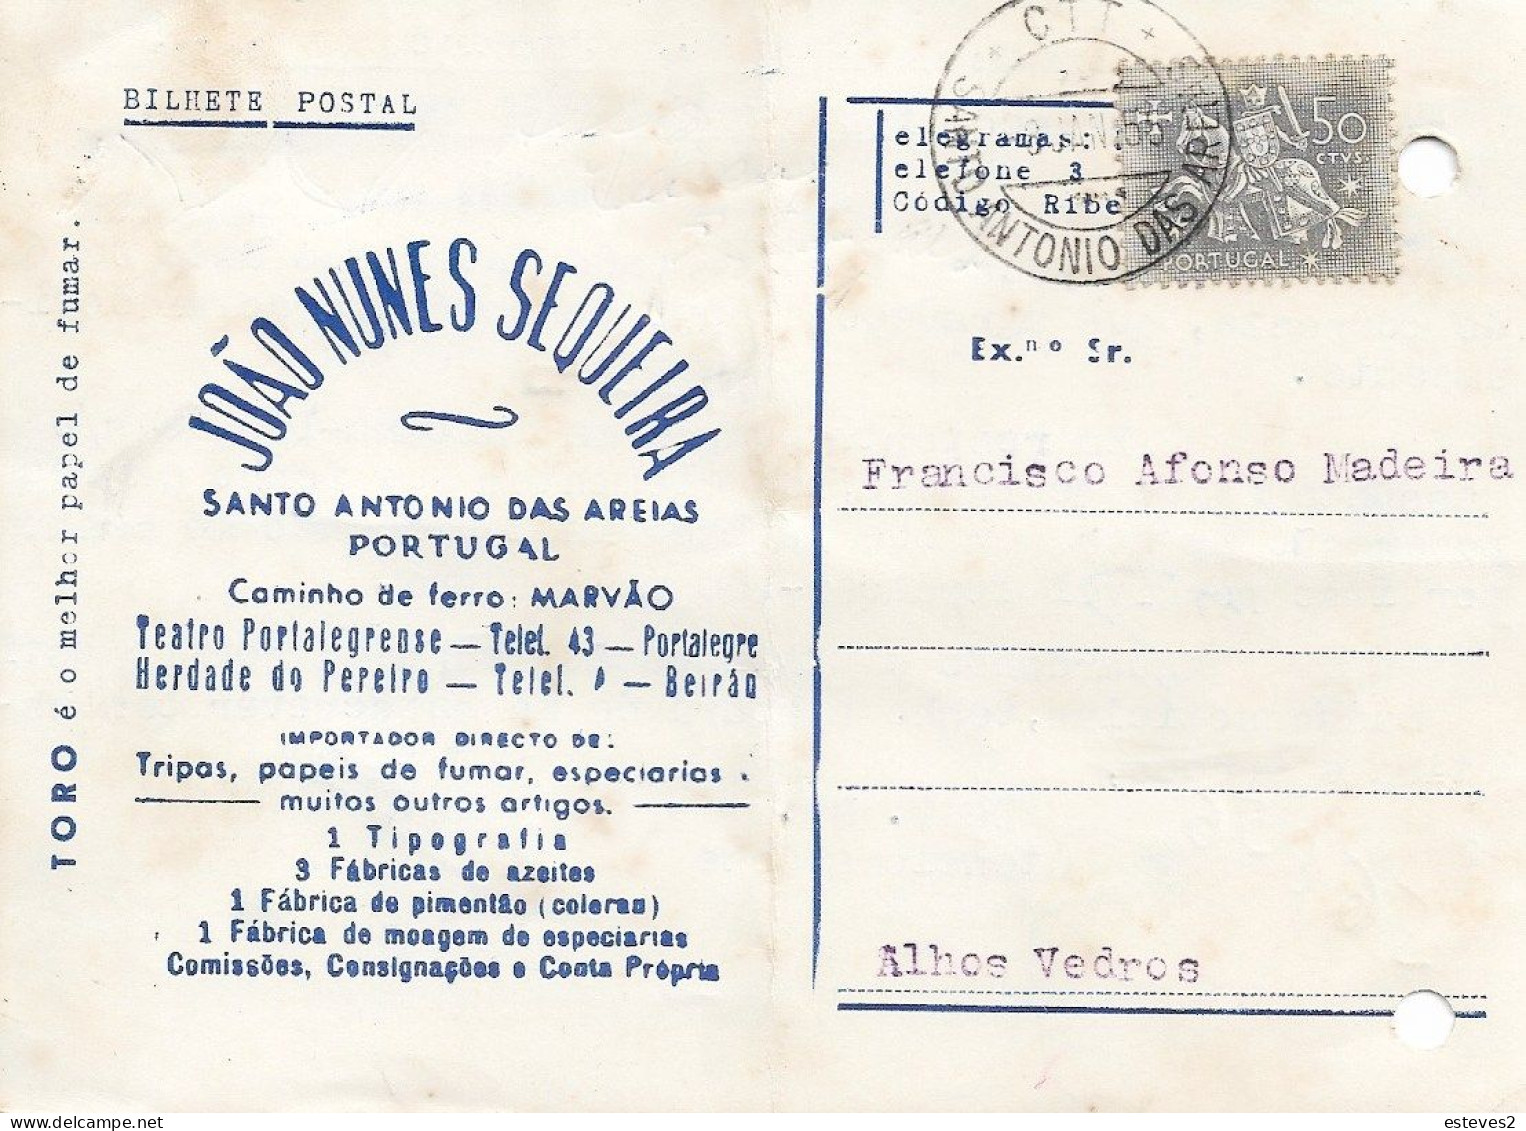 BILHETE POSTAL
TORO é o melhor papel de fumar.
JOÃO NUNES SEQUEIRA
SANTO ANTONIO DAS AREIAS
PORTUGAL
Caminho de ferro: MARVÃO
Teatro Portalegrense — Telef. 43 — Portalegre
Herdade do Pereiro — Telef. — Beirão
IMPORTADOR DIRECTO DE:
Tripas, papeis de fumar, especiarias
muitos outros artigos.
1 Tipografia
3 Fábricas de azeites
1 Fábrica de pimentão (colorau)
1 Fábrica de moagem de especiarias
Comissões, Consignações e Conta Própria
CTT
SANTO ANTONIO DAS AREIAS
JAN
50
CTVS.
PORTUGAL
elegramas:
elefone 3
Código Ribe
Ex.mo Sr.
Francisco Afonso Madeira
Alhos Vedros
esteves2